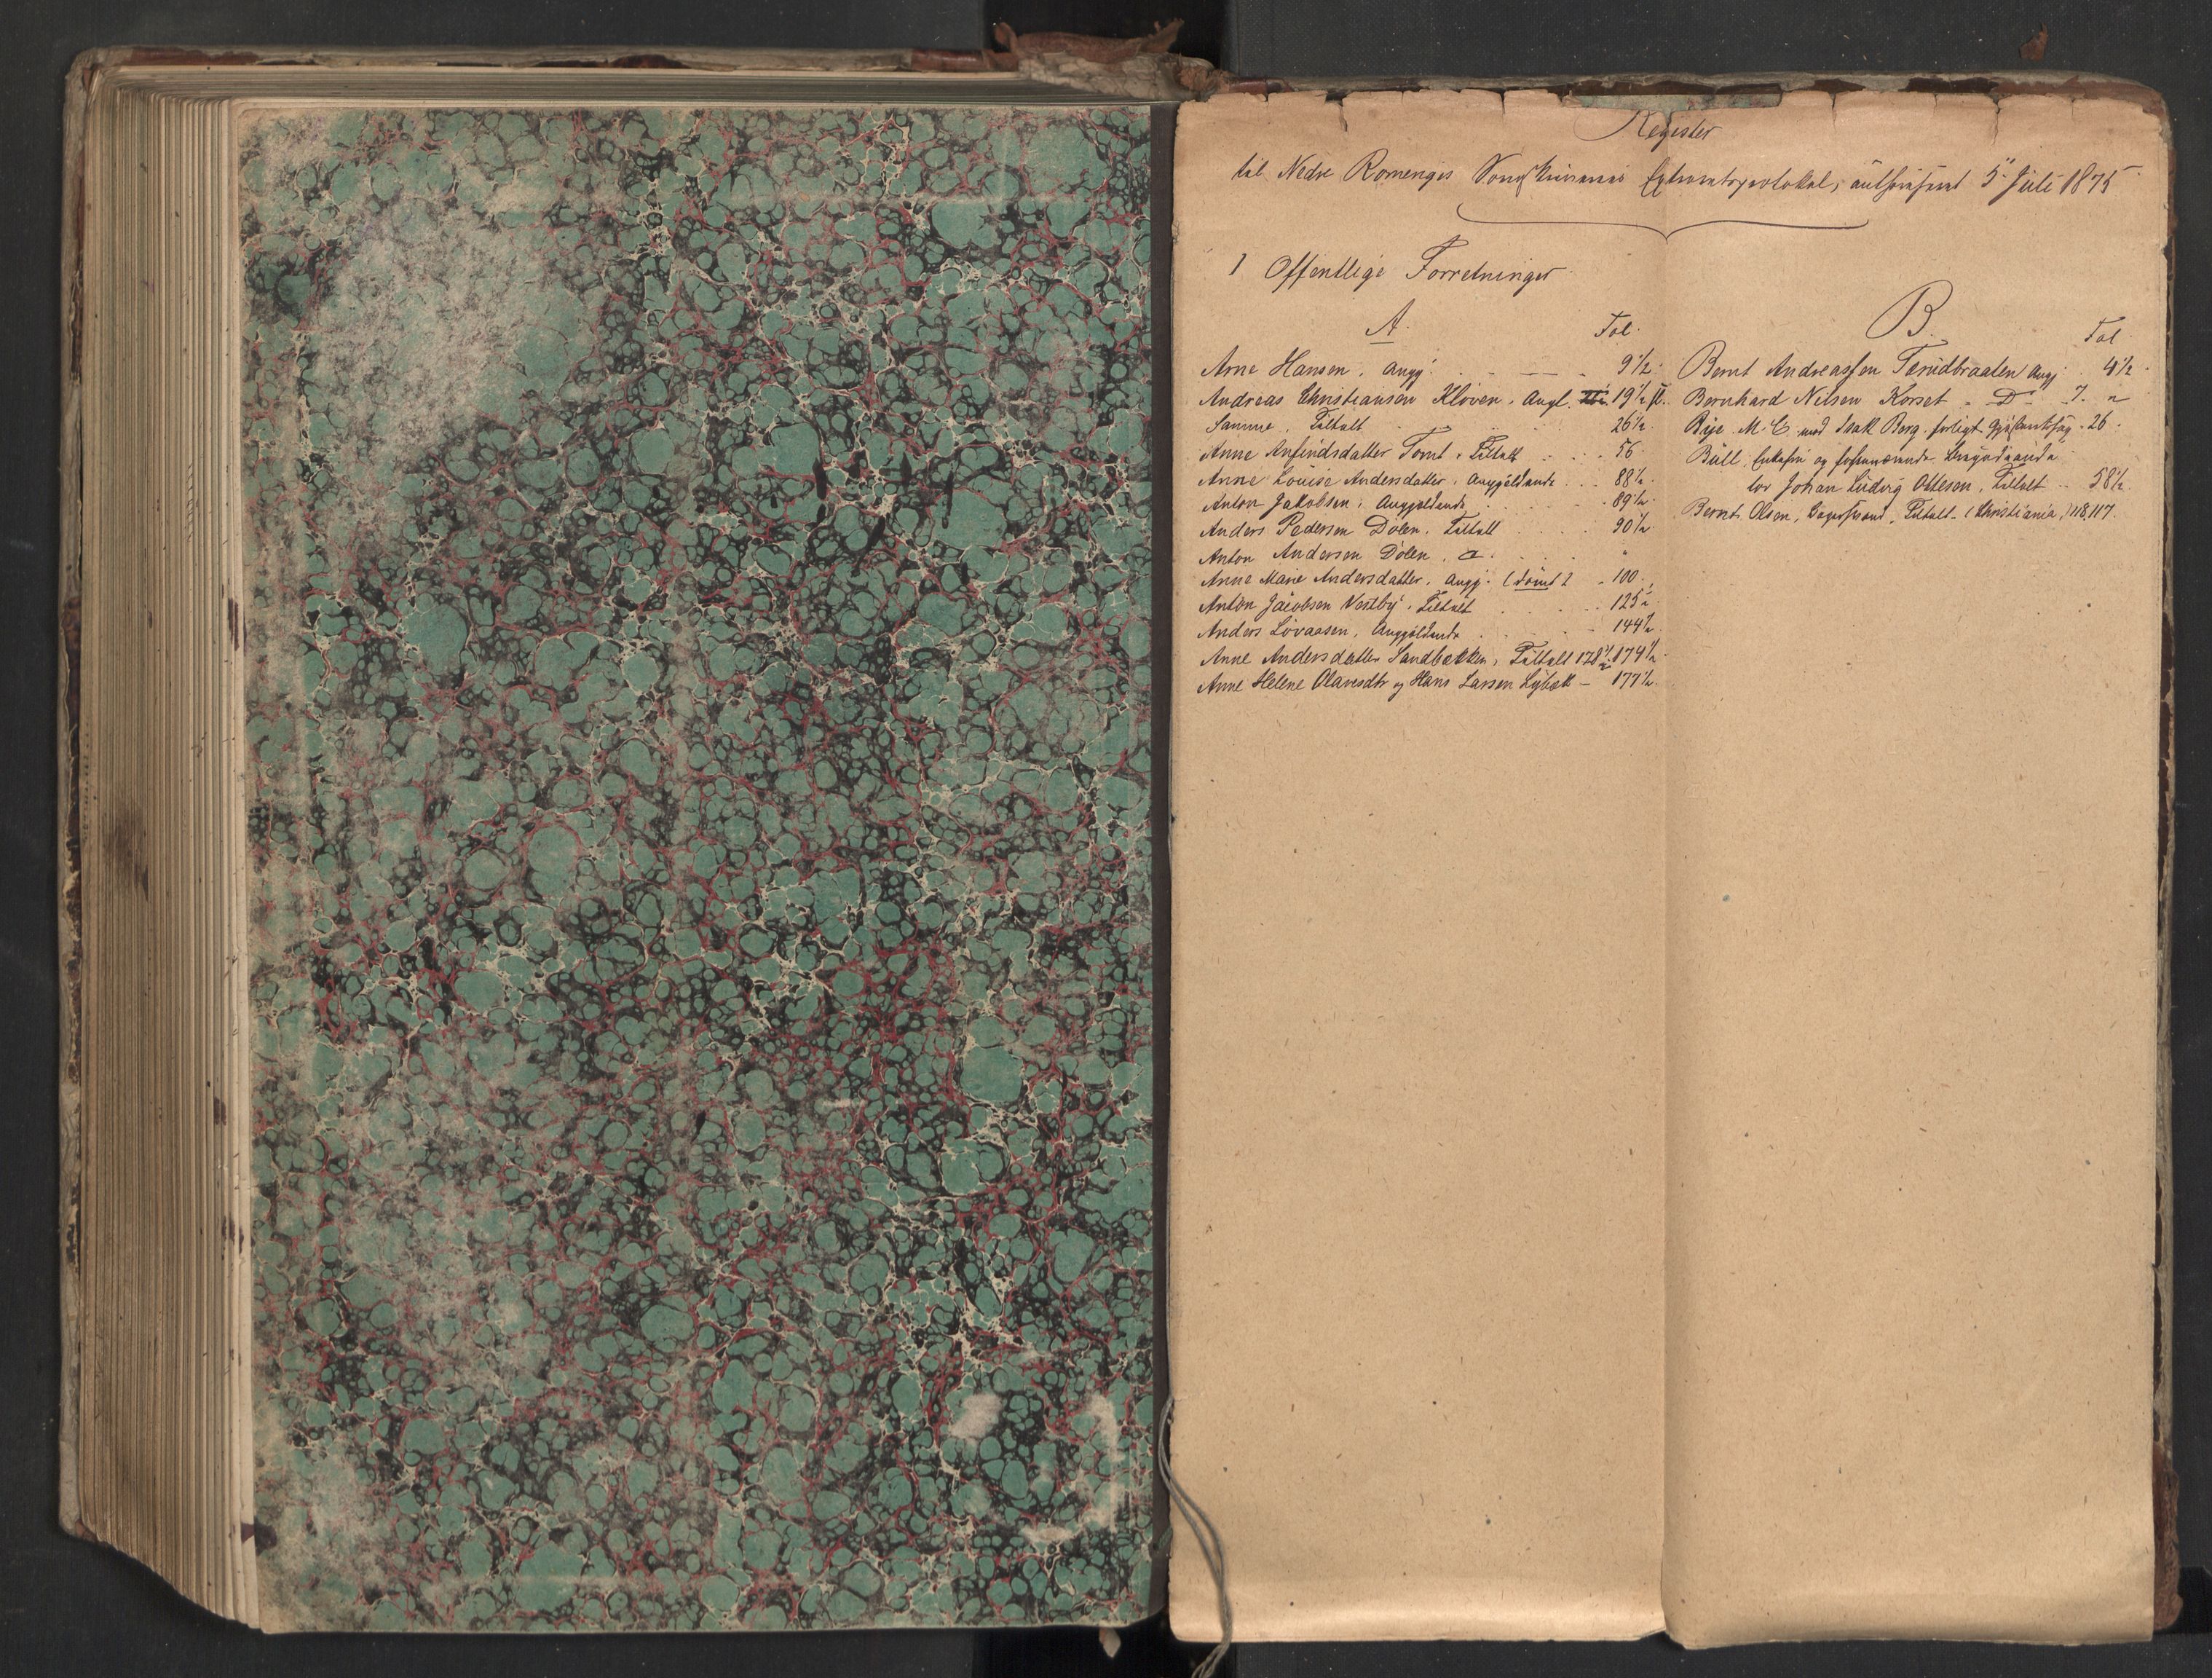 Register
til Nedre Romeriges Sorenskriveries Extraretsprotokol, authoriseret 5 Juli 1875
1 Offentlige Forretninger
A.
Fol.
Arne Hansen. angj. 9½.
Andreas Christiansen Kløven. Angl. 19½
Samme. Tiltalt 26½.
Anne Anfindsdatter Tomt. Tiltalt 56
Anne Louise Andersdatter. Angjeldende 88½.
Anton Jakobsen. Angjeldende 89½.
Anders Pedersen Dølen. Tiltalt 90½
Anton Andersen Dølen. "
Anne Marie Andersdatter. angj. (dømt) 100.
Anton Jacobsen Vestby. Tiltalt 125
Anders Løvaasen. Angjeldende 144½
Anne Andersdatter Sandbækken, Tiltalt 128½. 174½
Anne Helene Olavesdtr og Hans Larsen Lybæk — 177½.
B.
Fol.
Bernt Andreassen Tærudbraaten angj. 4½
Bernhard Nilsen Korset - Do - 7. "
Bye. M. C. med Isak Berg. forligt Gjæsteretssag. 26.
Bull, Enkefru og forhenværende
tor Johan Ludvig Ottesen, Tiltalt 58½.
Bernt Olsen, Tiltalt. (Christiania,) 118, 117.